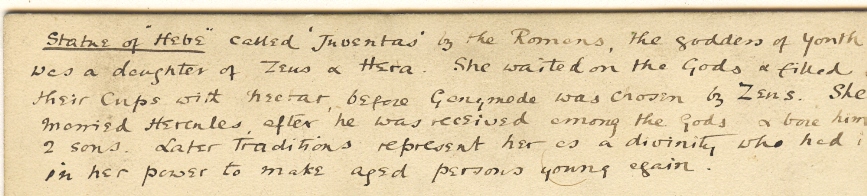 Statue of "Hebe" called 'Juventas' by the Romans, the goddess of Youth
was a daughter of Zeus & Hera. She waited on the Gods & filled
their Cups with nectar, before Ganymede was chosen by Zeus. She
married Hercules, after he was received among the Gods & bore him
2 sons. Later Traditions represent her as a divinity who had i
in her power to make aged persons young again.